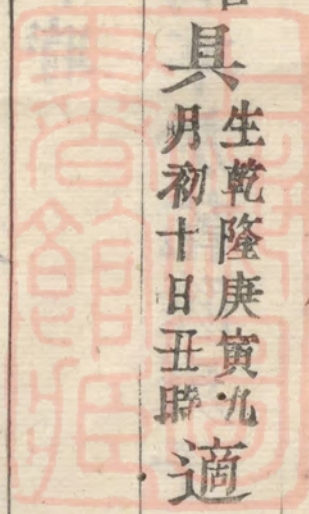 具
生乾隆庚寅九
月初十日丑時
適